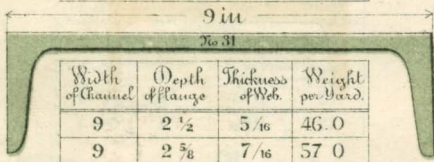 9 in
No 31
Width of Channel | Depth of Flange | Thickness of Web. | Weight per Yard.
9 | 2 1/2 | 5/16 | 46.0
9 | 2 5/8 | 7/16 | 57 0